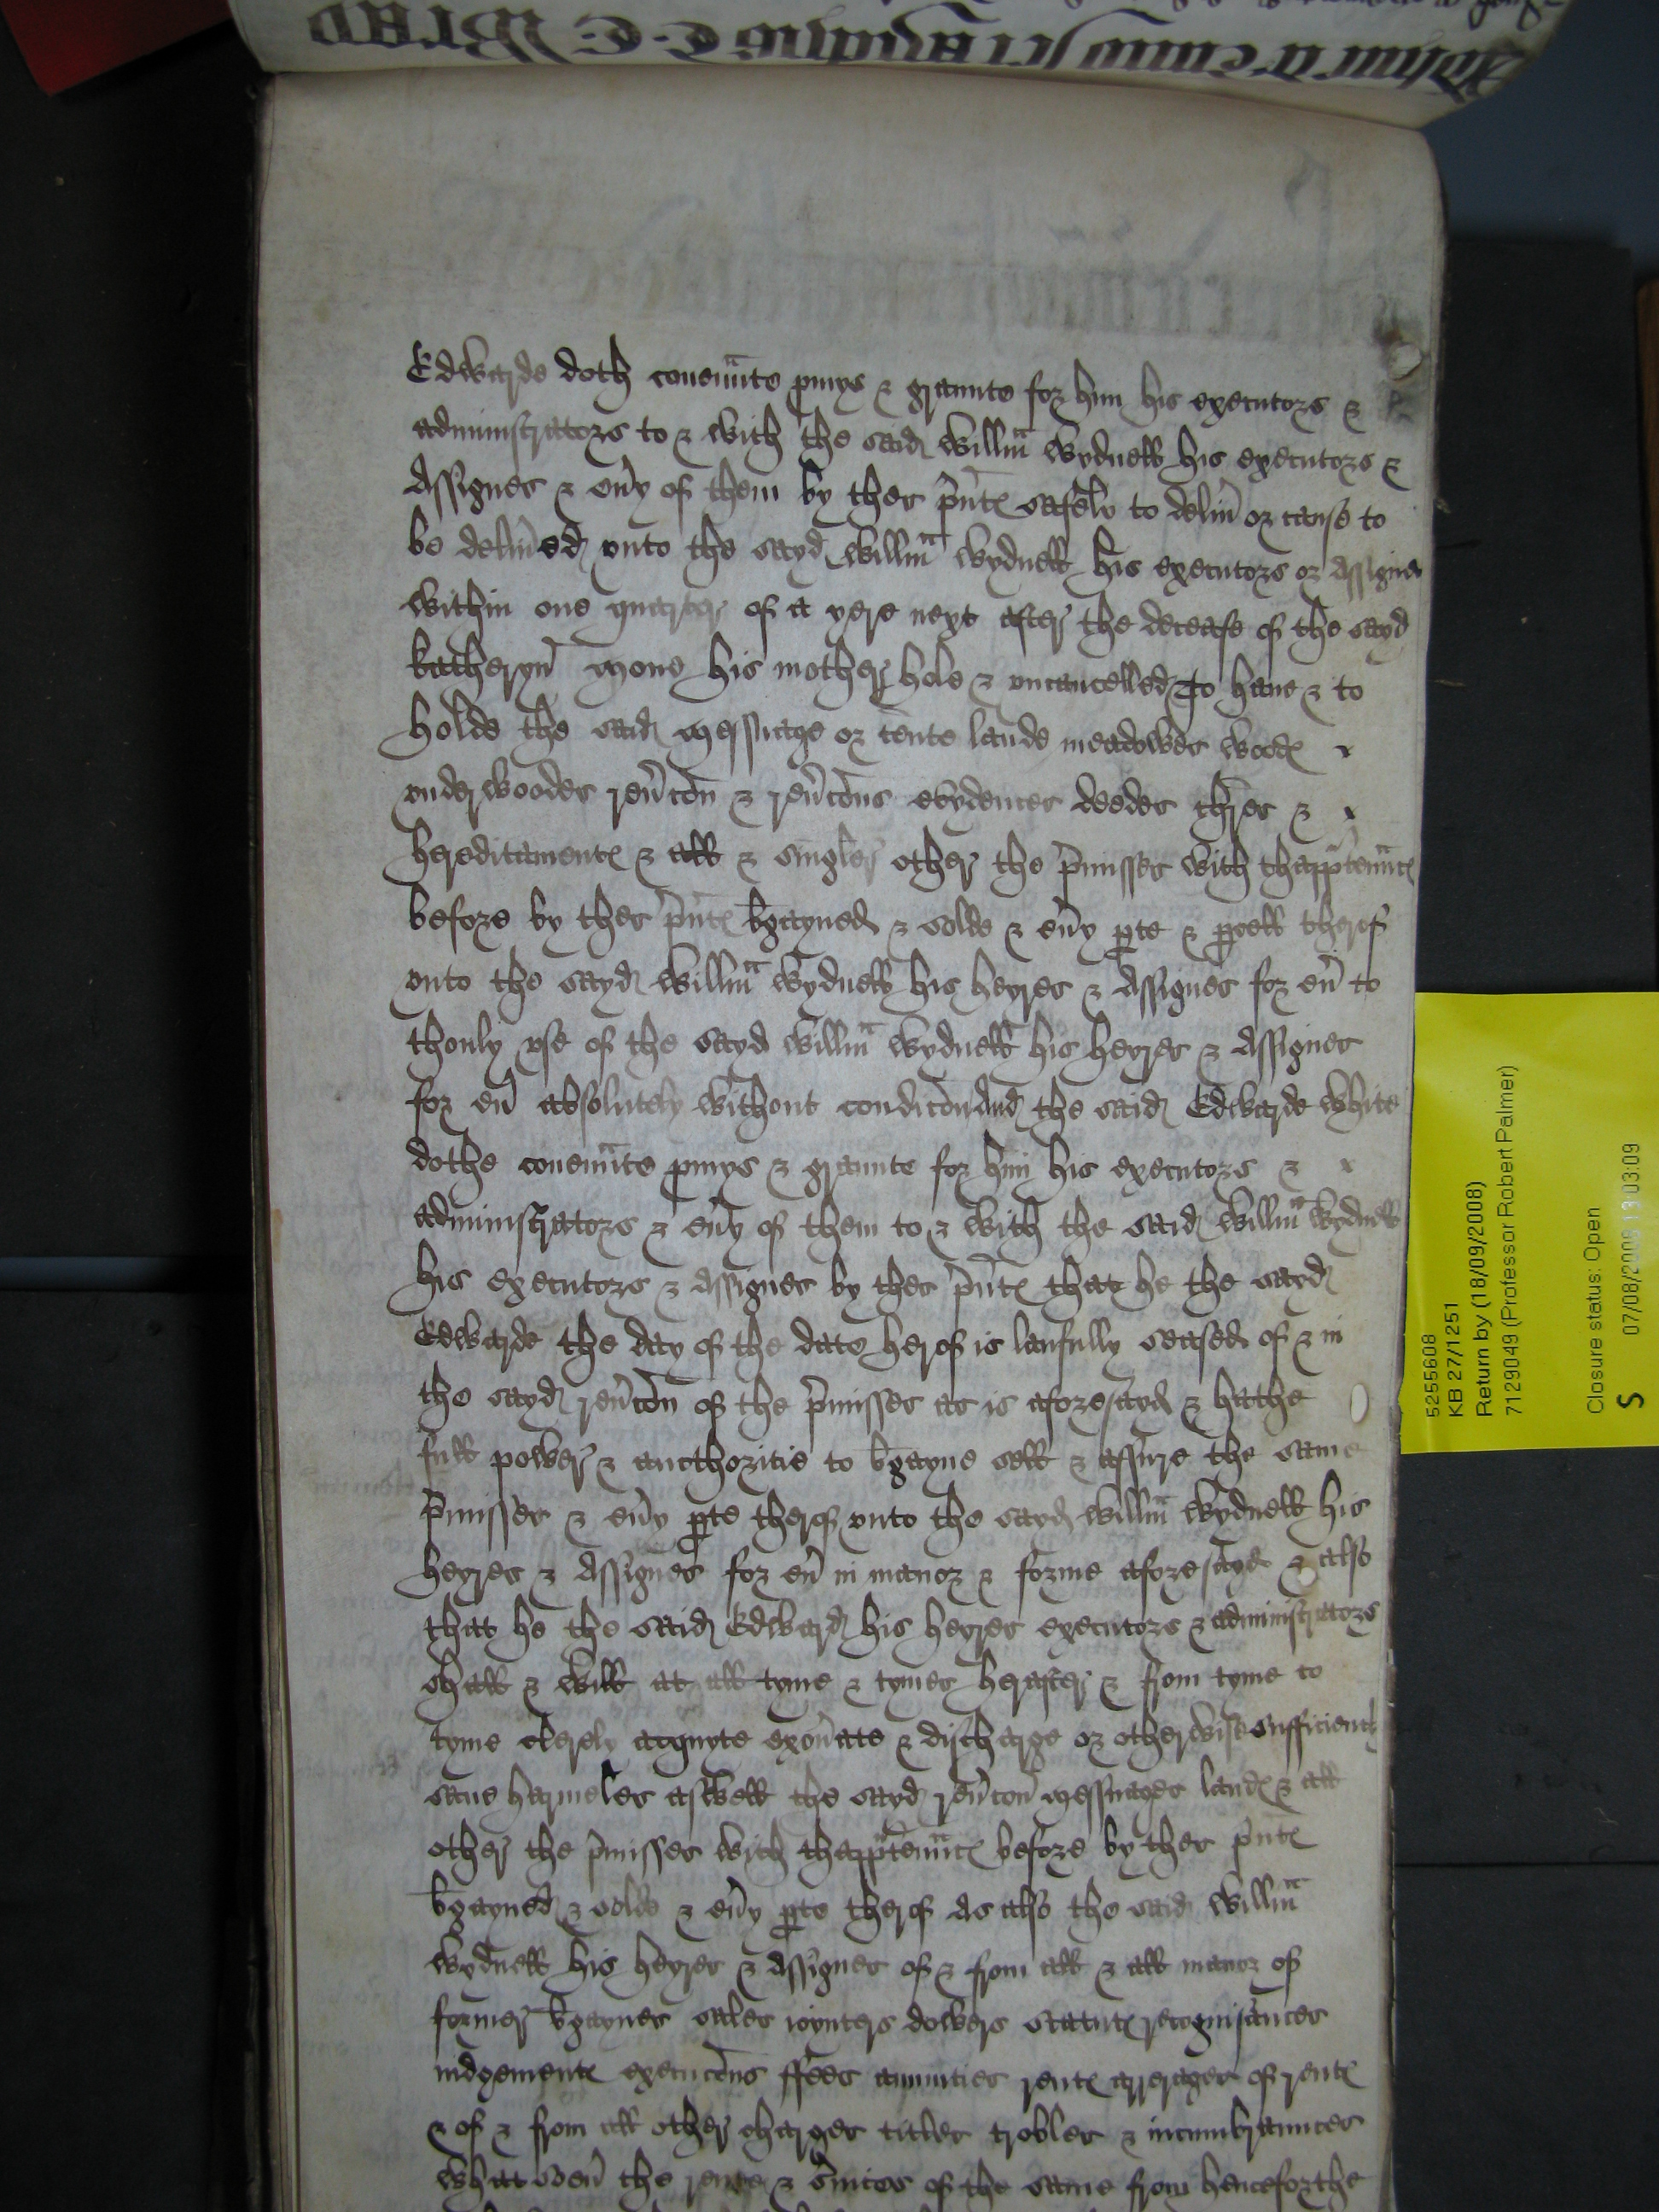 Edwarde doth conennte pmys & graunte for hym his executors &
administrators to & with the said Willm Wydnell his executors &
Assignes & eny of them by thes pnte safely to delin or cause to
be delined vnto the sayd Willm Wydnell his executors or Assignes
within one quarter of a yere next after the decease of the sayd
Katheryn mone his mother hole & vncancelled To haue & to
holde the said messuage or tente lande meadowes woode
vnderwoodes reucon & reucons evydences deedes tres &
hereditamente & all & singler other the pmisses with thapptennce
before by thes pnte bgayned & solde & eny pte & pcell therof
vnto the sayd Willm Wydnell his heyres & Assignes for eu to
thonly vse of the sayd Willm Wydnell his heyres & Assignes
for eu absolutely without condicon And the said Edwarde White
dothe conennte pmys & graunte for hym his executors &
administrators & eny of them to & with the said Willm Wydnell
his executors & Assignes by thes pnte that he the sayd
Edwarde the day of the date herof is laufully seased of & in
the sayd reucon of the pmisses as is aforesayd & hathe
full power & aucthoritie to bgayne sell & assure the same
pmisses & eny pte therof vnto the sayd Willm Wydnell his
heyres & Assignes for eu in manor & forme aforesayde & also
that he the said Edward his heyres executors & administrators
shall & will at all tyme & tymes herafter & from tyme to
tyme clerely acquyte exonate & discharge or otherwise sufficiently
saue harmeles aswell the sayd reucon messuages lande & all
other the pmisses with thapptennce before by thes pnte
bgayned & solde & eny pte therof As also the said Willm
Wydnell his heyres & Assignes of & from all & all manor of
former bgaynes sales ioynters dowers statute recognisances
iudgemente execucons ffees annuities rente arrerages of rente
& of & from all other charges titles trobles & incumbraunces
whatsoeu the rente & suices of the same from henceforthe
5255608
KB 27/1251
Return by (18/09/2008)
7129049 (Professor Robert Palmer)
Closure status: Open
07/08/2008 13:03:09
S